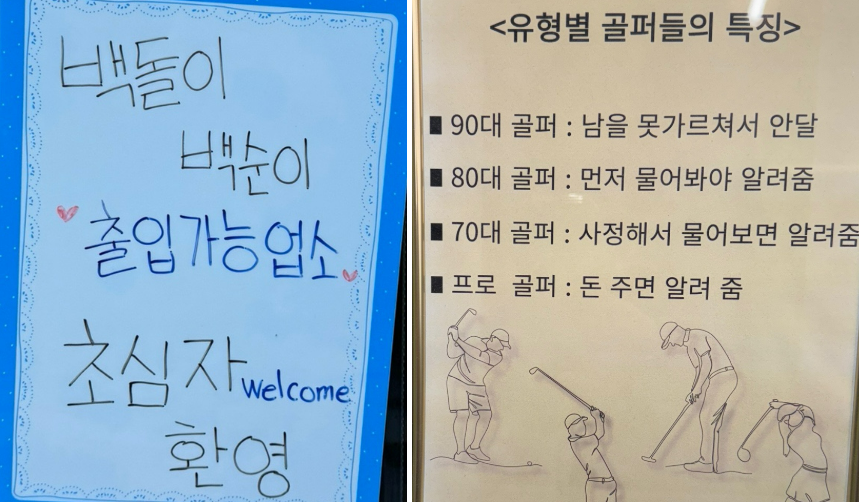 백돌이
백순이
출입가능업소
초심자 welcome
환영
<유형별 골퍼들의 특징>
■ 90대 골퍼 : 남을 못가르쳐서 안달
■ 80대 골퍼 : 먼저 물어봐야 알려줌
■ 70대 골퍼 : 사정해서 물어보면 알려줌
■ 프로 골퍼 : 돈 주면 알려 줌